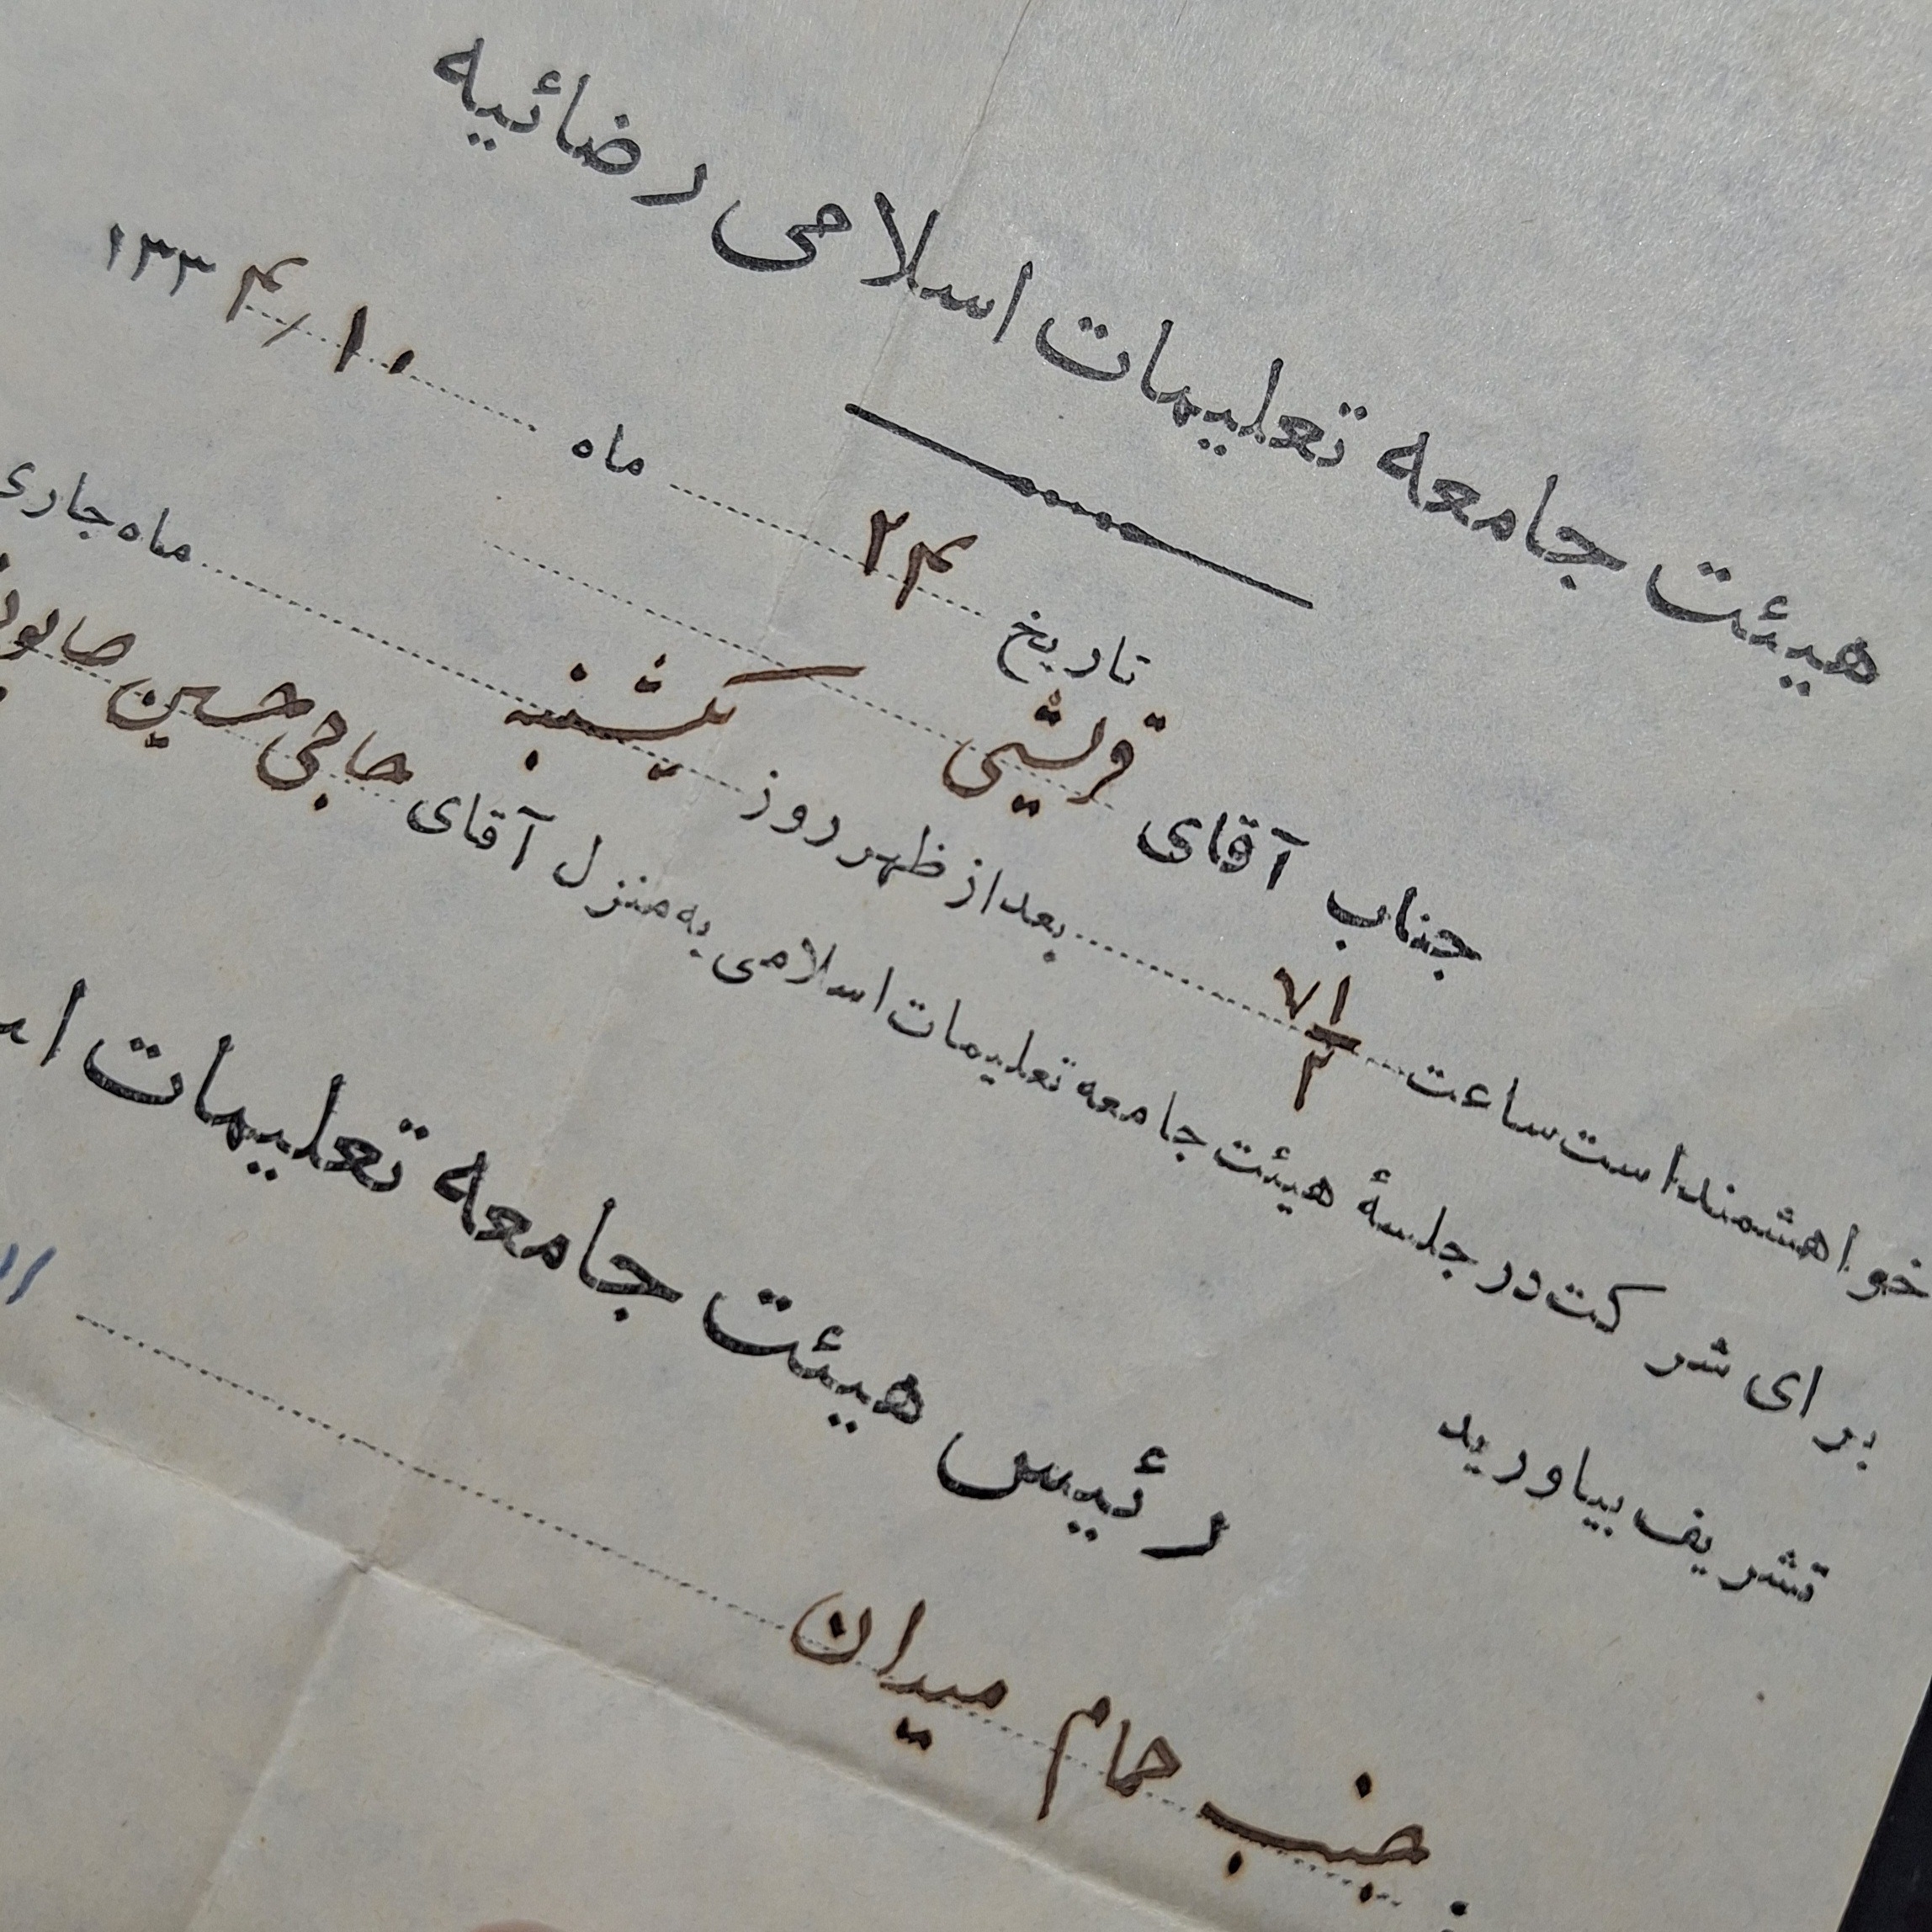 هیئت جامعه تعلیمات اسلامی رضائیه
تاریخ ۲۴ ماه ۱۰ / ۱۳۳۴
جناب آقای قریشی
خواهشمند است ساعت ۷ ۱/۲ بعد از ظهر روز یکشنبه ماه جاری
برای شرکت در جلسهٔ هیئت جامعه تعلیمات اسلامی به منزل آقای حاجی حسین
تشریف بیاورید
رئیس هیئت جامعه تعلیمات
جنب حمام میدان